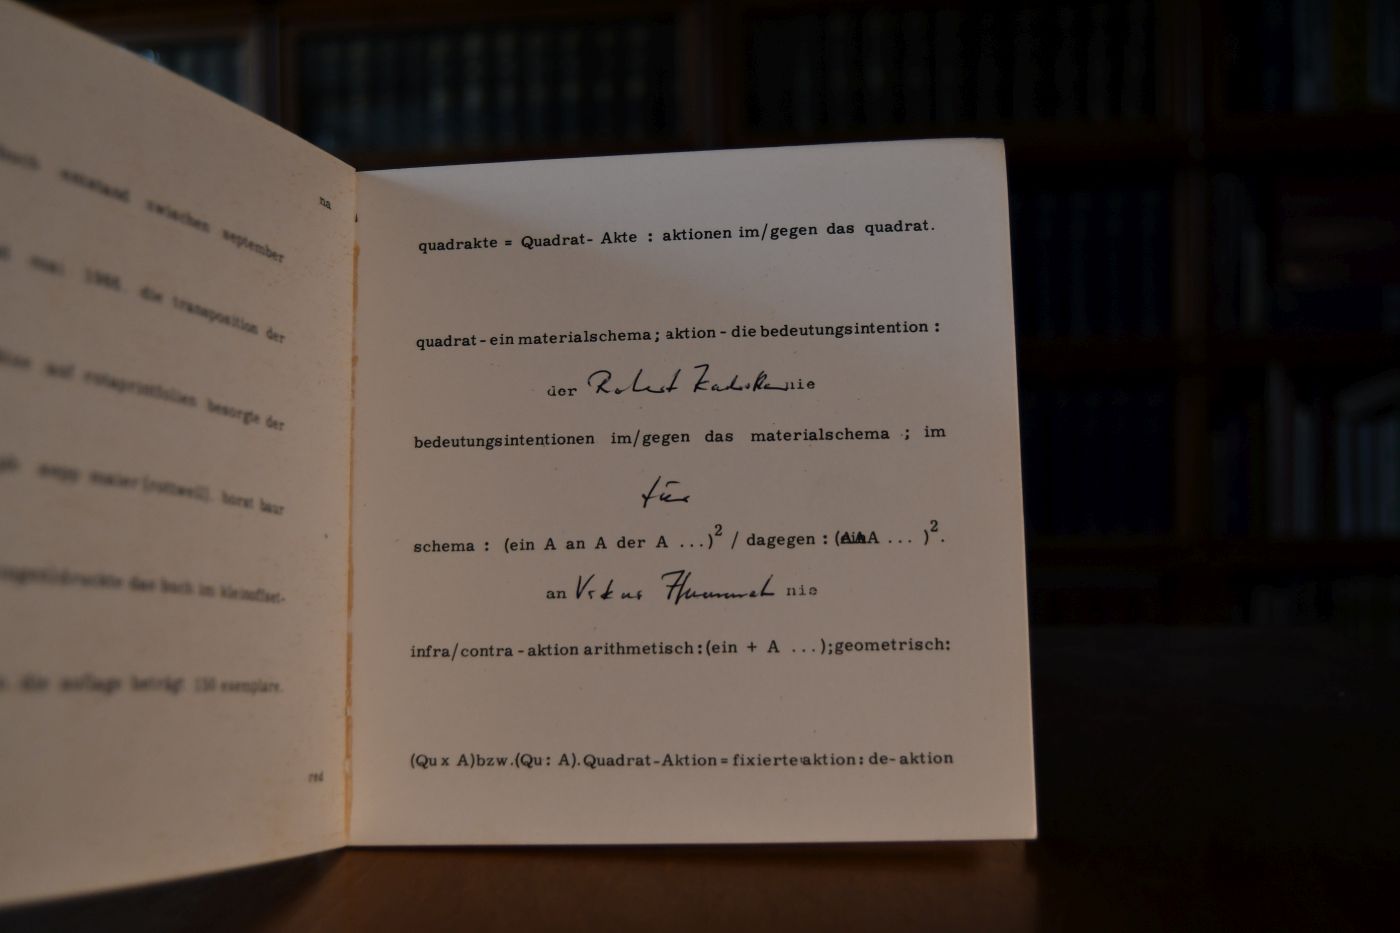 buch entstand zwischen september
na
mai 1966. die transposition der
auf rotaprintfolien besorgte der
sepp maier (rottweil). horst baur
druckte das buch im kleinoffset-
die auflage beträgt 150 exemplare.
red
quadrakte = Quadrat- Akte : aktionen im/gegen das quadrat.
quadrat - ein materialschema ; aktion - die bedeutungsintention :
der Robert nie
bedeutungsintentionen im/gegen das materialschema ; im
für
schema : (ein A an A der A ...)² / dagegen : ( A ... )².
an nie
infra/contra - aktion arithmetisch : (ein + A ...);geometrisch:
(Qu x A)bzw.(Qu : A).Quadrat-Aktion = fixierte aktion : de- aktion